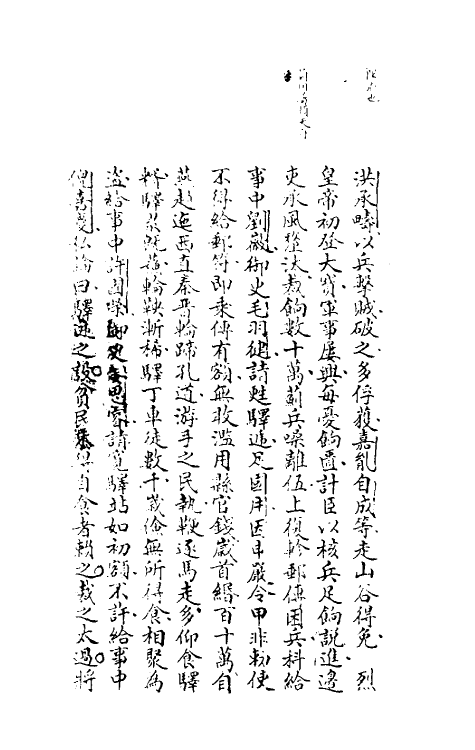 洪承疇以兵擊賊破之多俘獲嘉胤自成等走山谷得免　烈
皇帝初登大寶軍事屢興每憂餉匱計臣以核兵足餉說進邊
吏承風釐汰裁餉數十萬薊兵噪離伍上復軫郵傳困兵科給
事中劉懋御史毛羽健請甦驛遞足國用因申嚴令甲非勅使
不得給郵符即乘傳有額無敢濫用縣官錢歲首緡百十萬自
燕趙迤西直秦晉輪蹄孔道游手之民執鞭逐馬走多仰食驛
糈驛裁既舊輪鞅斷稀驛丁車徒數千歲儉無所得食相聚為
盜給事中許國榮御史姜思睿請寬驛站如初額不許給事中
倪嘉慶私論曰驛遞之設貧民無得自食者賴之裁之太過將